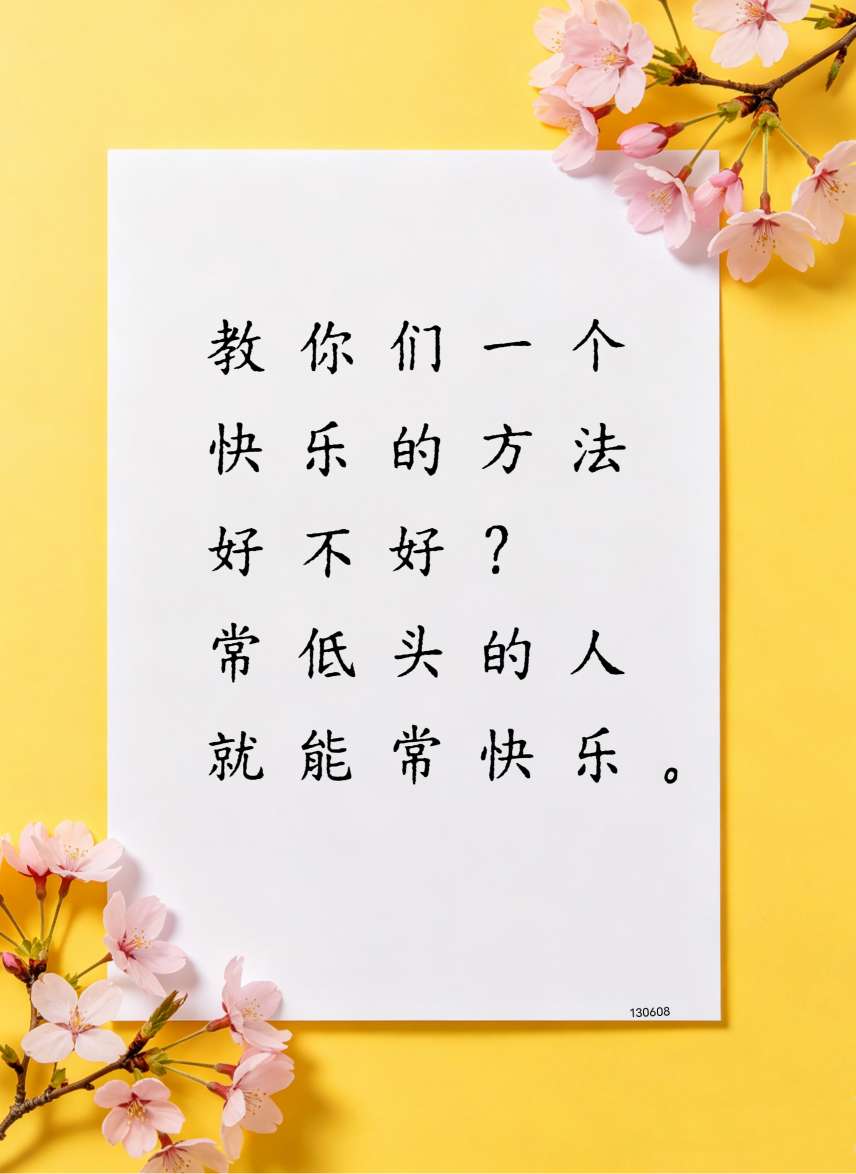 教你们一个
快乐的方法
好不好？
常低头的人
就能常快乐。
130608